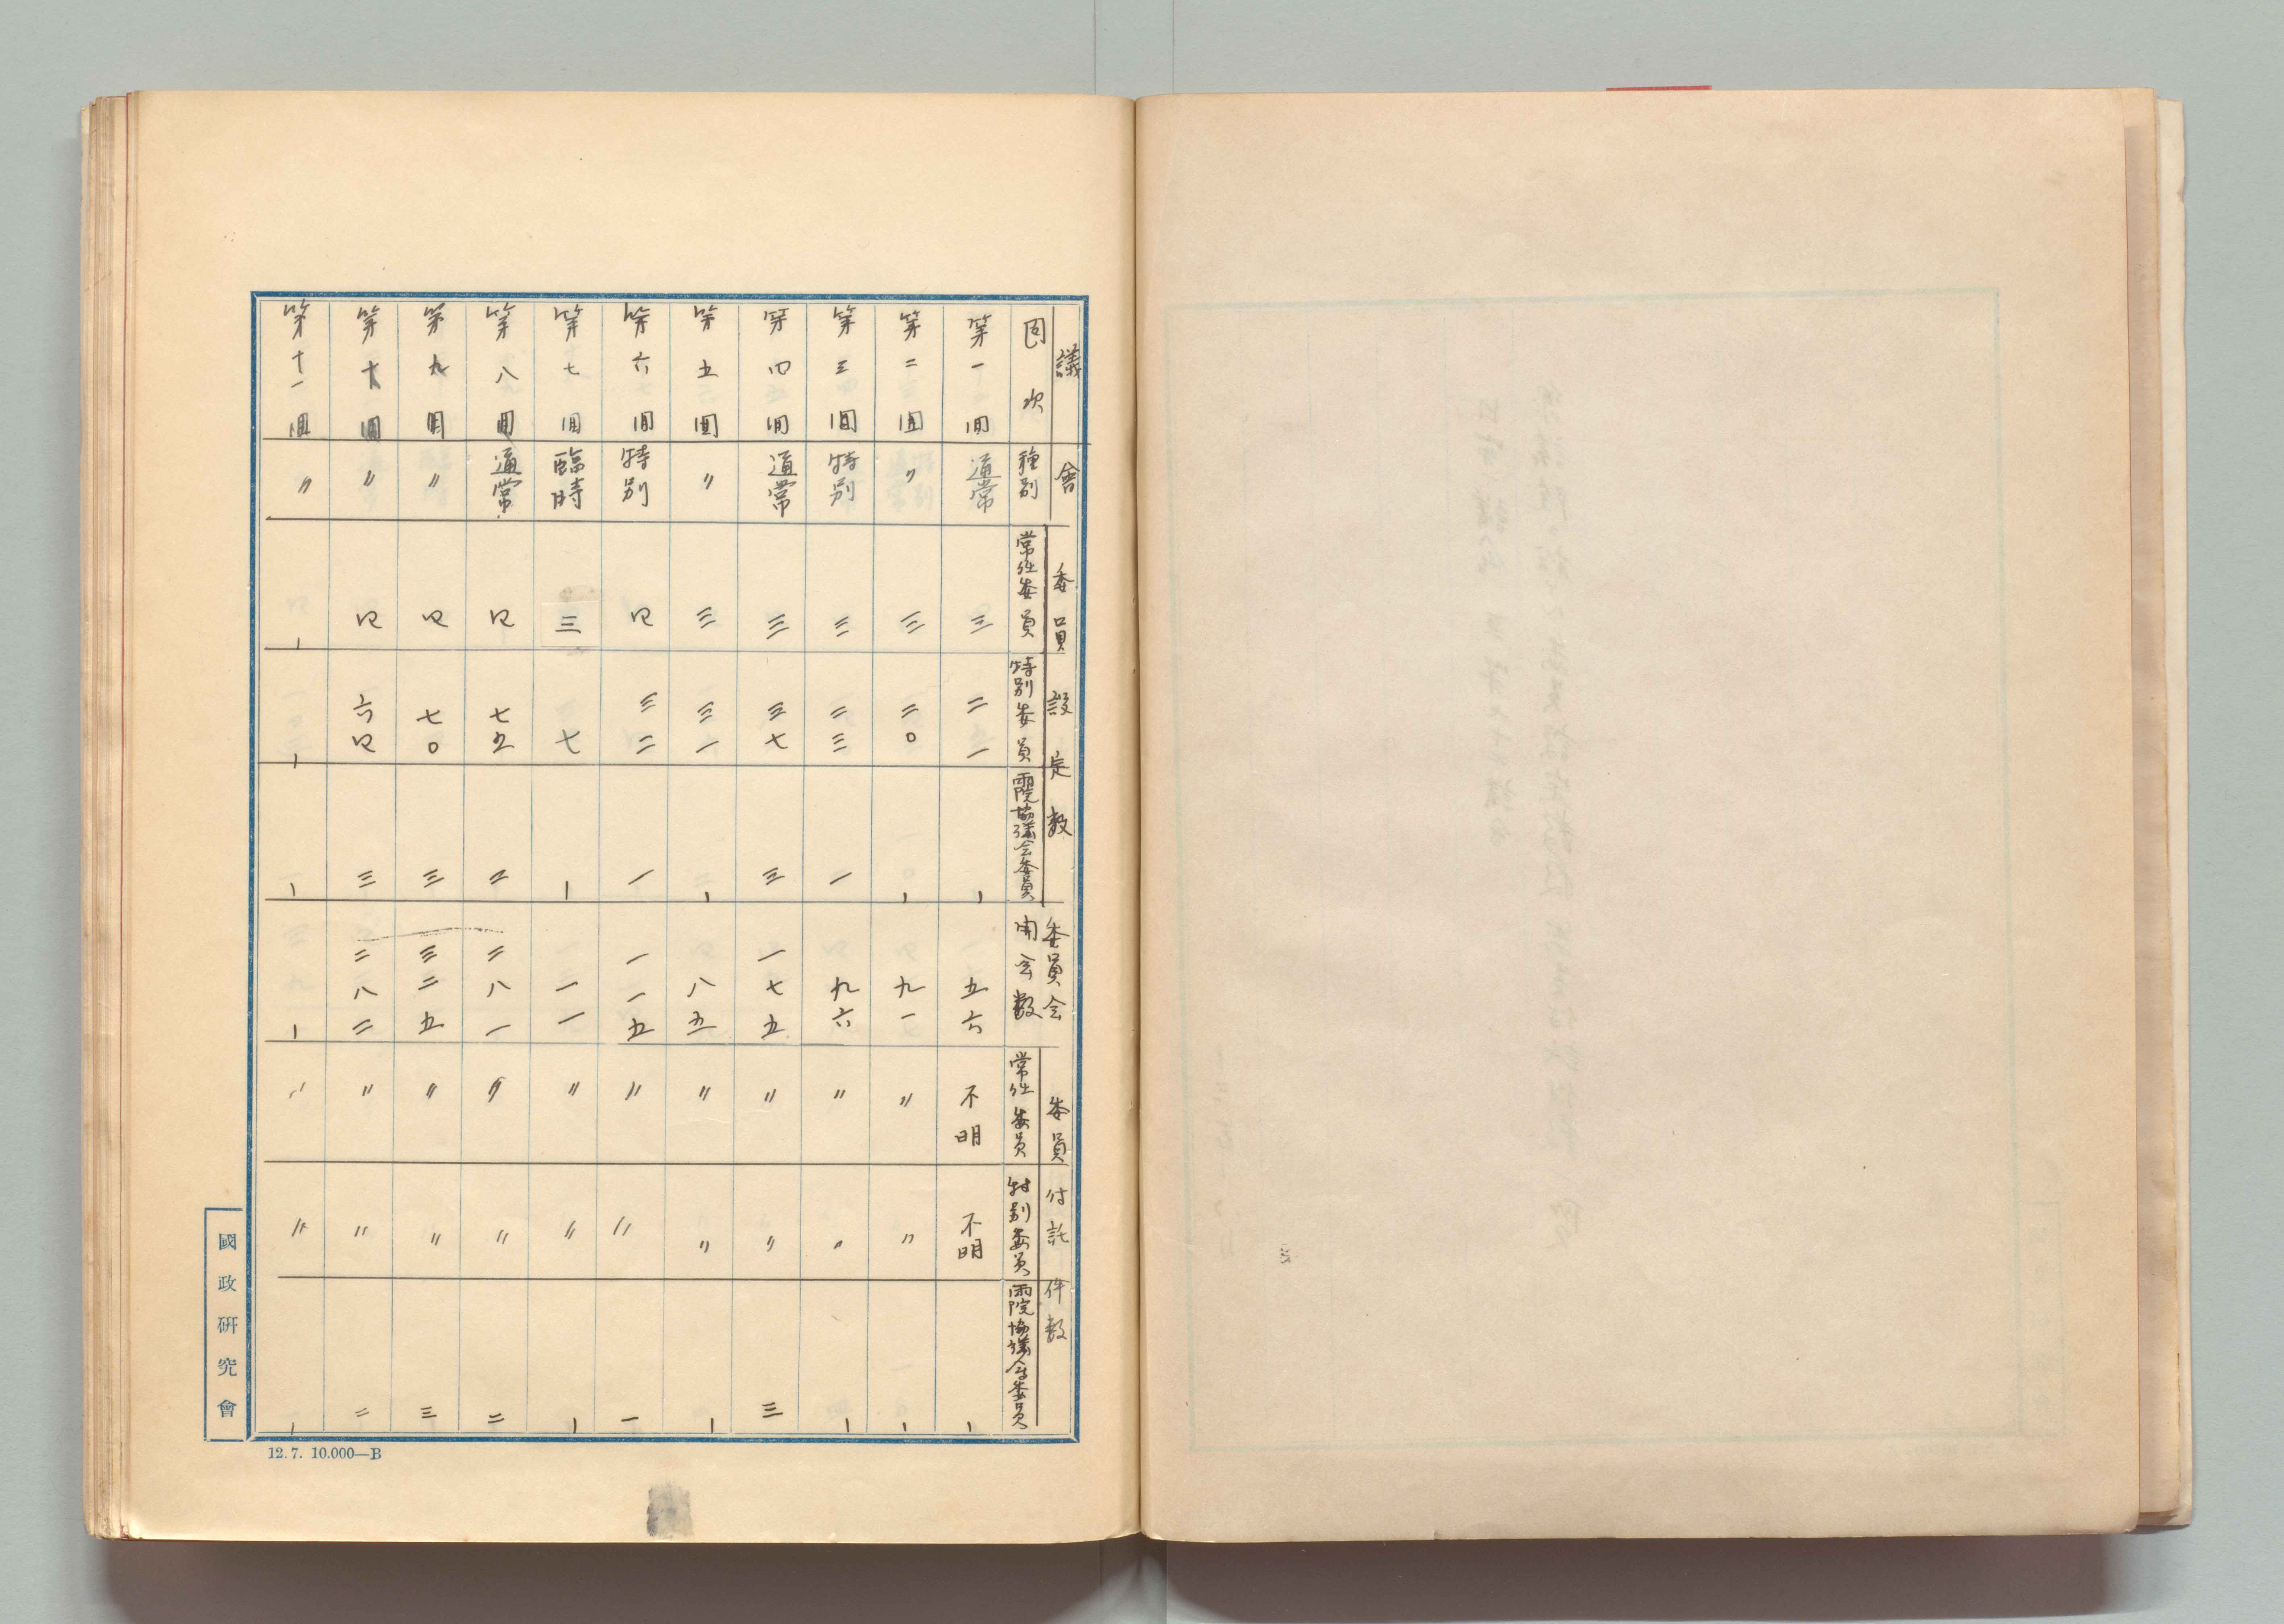 議會 委員設定数 委員会 委員付託件数
回次 種別 常任委員 特別委員 両院協議会委員 開会数 常任委員 特別委員 両院協議会委員
第一回 通常 三 二一 ー 五六 不明 不明 ー
第二回 〃 三 二〇 ー 九一 〃 〃 ー
第三回 特別 三 二三 一 九六 〃 〃 ー
第四回 通常 三 三七 三 一七五 〃 〃 三
第五回 〃 三 三一 ー 八五 〃 〃 ー
第六回 特別 四 三二 一 一一五 〃 〃 一
第七回 臨時 三 七 ー 一一 〃 〃 ー
第八回 通常 四 七五 二 二八一 〃 〃 二
第九回 〃 四 七〇 三 三二五 〃 〃 三
第十回 〃 四 六四 三 二八二 〃 〃 二
第十一回 〃 ー ー ー ー 〃 〃 ー
國政研究會
12. 7. 10.000—B